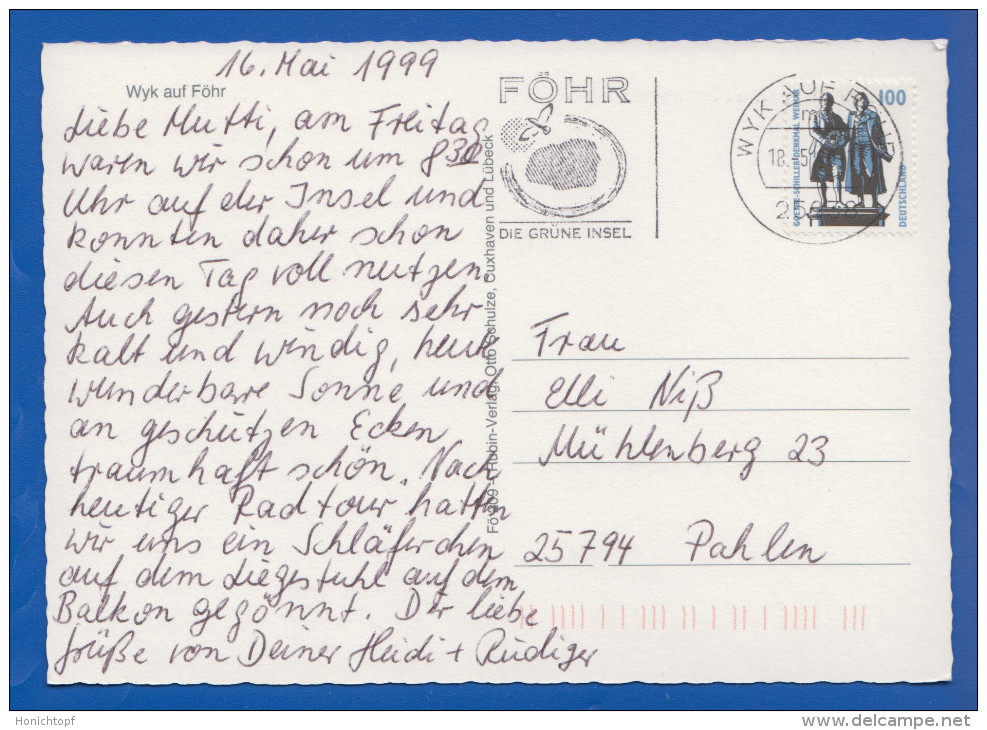 16. Mai 1999
Wyk auf Föhr
Liebe Mutti, am Freitag
waren wir schon um 8 30
Uhr auf der Insel und
konnten daher schon
diesen Tag voll nutzen.
Auch gestern noch sehr
kalt und windig, heute
wunderbare Sonne und
an geschützen Ecken
traumhaft schön. Nach
heutiger Radtour hatten
wir uns ein Schläferchen
auf dem Liegestuhl auf dem
Balkon gegönnt. Dir liebe
Grüße von Deiner Heidi + Rüdiger
FÖHR
DIE GRÜNE INSEL
WYK AUF
18.
100
GOETHE-SCHILLER-DENKMAL WEIMAR
DEUTSCHLAND
Rubin-Verlag, Otto Schulze, Cuxhaven und Lübeck
Frau
Elli Niß
Mühlenberg 23
25794 Pahlen
Honichtopf
www.delcampe.net